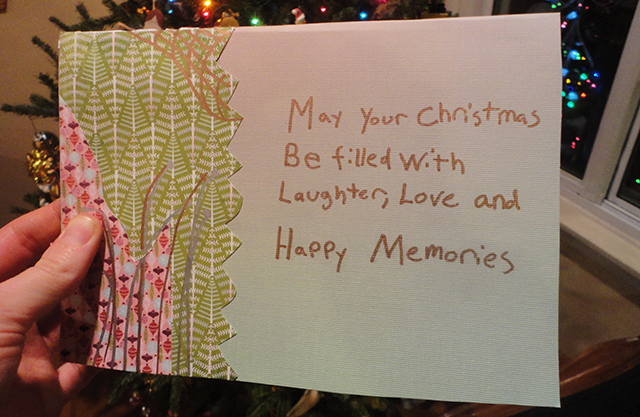 May Your Christmas
Be filled with
Laughter, Love and
Happy Memories